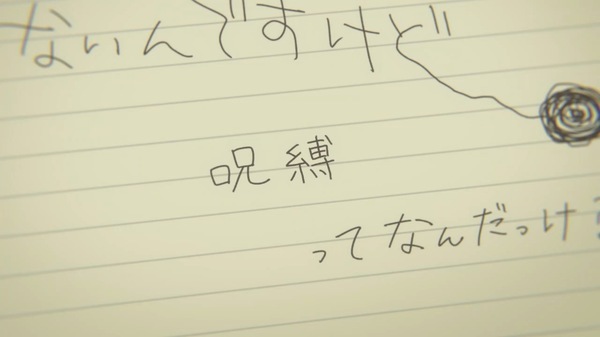 ないんですけど
呪縛
ってなんだっけ